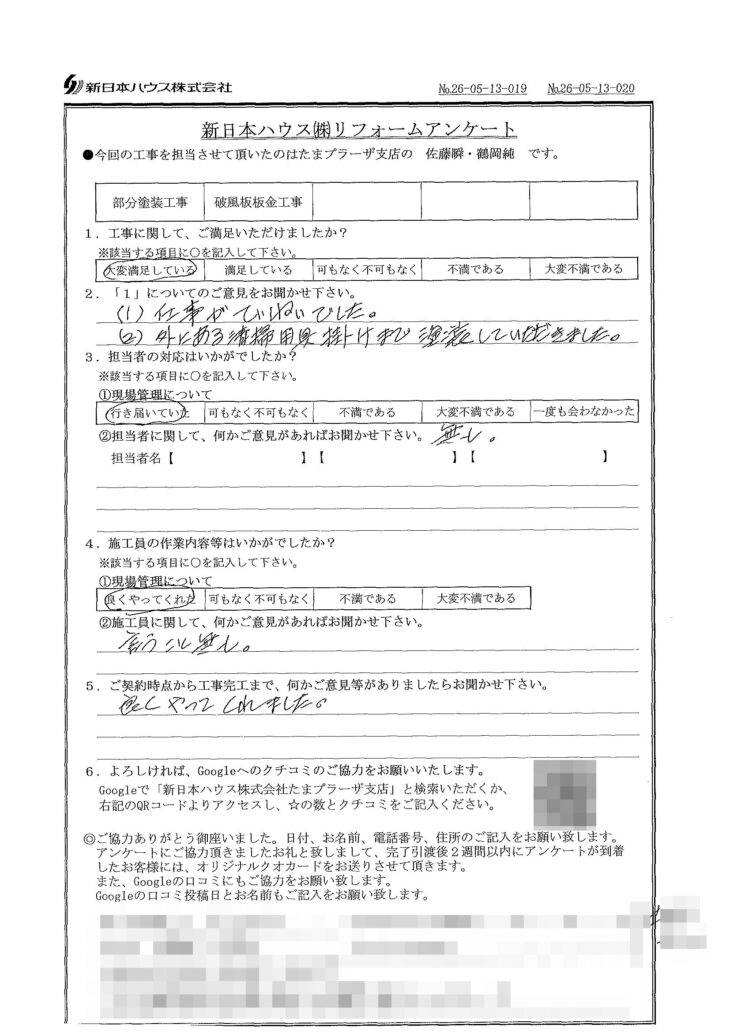 新日本ハウス株式会社 №26-05-13-019 №26-05-13-020
新日本ハウス㈱リフォームアンケート
●今回の工事を担当させて頂いたのはたまプラーザ支店の 佐藤瞬・鶴岡純 です。
部分塗装工事 破風板板金工事
1．工事に関して、ご満足いただけましたか？
※該当する項目に○を記入して下さい。
大変満足している 満足している 可もなく不可もなく 不満である 大変不満である
2．「1」についてのご意見をお聞かせ下さい。
(1) 仕事がていねいでした。
(2) 外にある清掃用具掛けまで塗装していただきました。
3．担当者の対応はいかがでしたか？
※該当する項目に○を記入して下さい。
①現場管理について
行き届いていた 可もなく不可もなく 不満である 大変不満である 一度も会わなかった
②担当者に関して、何かご意見があればお聞かせ下さい。 無し。
担当者名【 】【 】【 】
4．施工員の作業内容等はいかがでしたか？
※該当する項目に○を記入して下さい。
①現場管理について
良くやってくれた 可もなく不可もなく 不満である 大変不満である
②施工員に関して、何かご意見があればお聞かせ下さい。
言うこと無し。
5．ご契約時点から工事完工まで、何かご意見等がありましたらお聞かせ下さい。
良くやってくれました。
6．よろしければ、Googleへのクチコミのご協力をお願いいたします。
Googleで「新日本ハウス株式会社たまプラーザ支店」と検索いただくか、
右記のQRコードよりアクセスし、☆の数とクチコミをご記入ください。
◎ご協力ありがとう御座いました。日付、お名前、電話番号、住所のご記入をお願い致します。
アンケートにご協力頂きましたお礼と致しまして、完了引渡後2週間以内にアンケートが到着
したお客様には、オリジナルクオカードをお送りさせて頂きます。
また、Googleの口コミにもご協力をお願い致します。
Googleの口コミ投稿日とお名前もご記入をお願い致します。